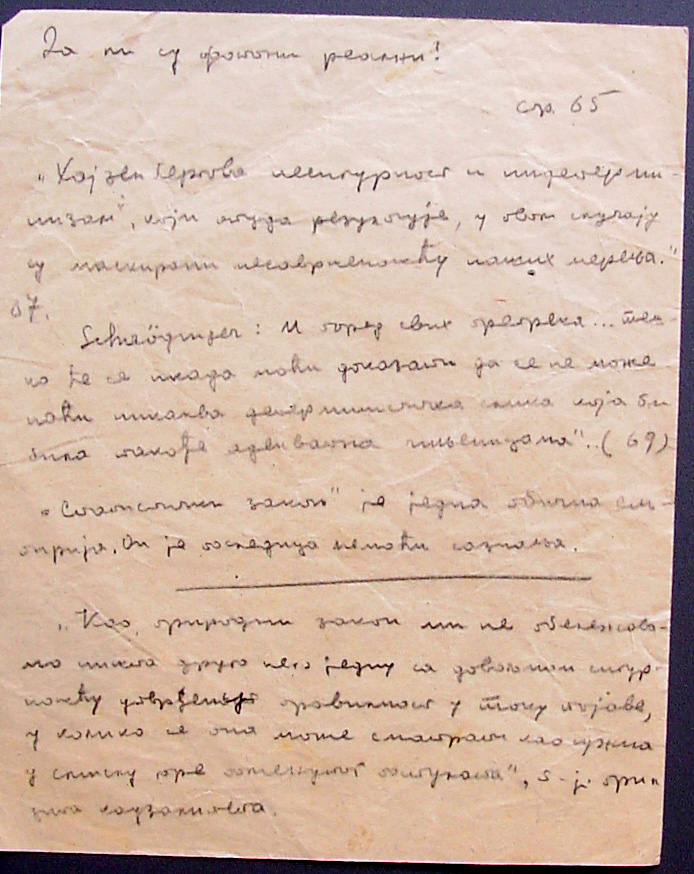 Да ли су фотони реални!
стр. 65
„Хајзенбергова несигурност и индетерми-
низам", који отуда резултује, у овом случају
су маскирани несавршеношћу наших мерења."
67.
Schrödinger: И поред свих препрека... теш-
ко ће се икада моћи доказати да се не може
наћи никаква детерминистичка слика која би
била такође адекватна чињеницама".. (69)
„Статистички закон" је једна обична ем-
пирија. Он је последица немоћи сазнања.
„Као природни закон ми не обележава-
мо ништа друго него једну са довољном сигур-
ношћу утврђену правилност у току појаве,
у колико се она може сматрати као нужна
у смислу горе поменутог постулата",
каузалитета.